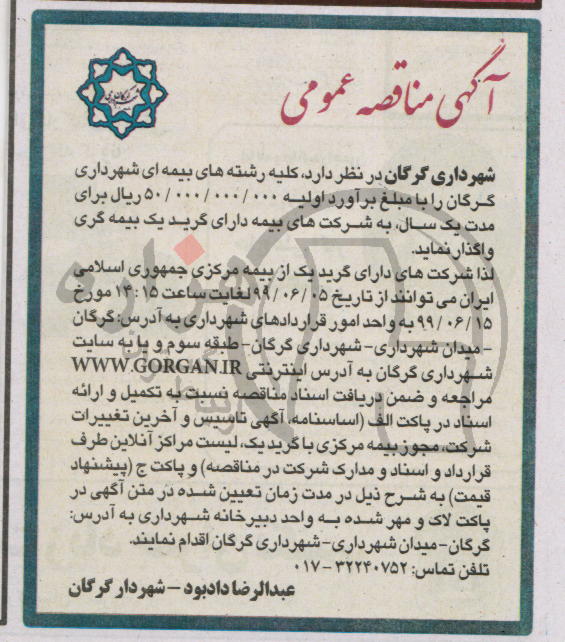 آگهی مناقصه عمومی
شهرداری گرگان
شهرداری گرگان در نظر دارد، کلیه رشته های بیمه ای شهرداری
گرگان را با مبلغ برآورد اولیه ۵۰/۰۰۰/۰۰۰/۰۰۰ ریال برای
مدت یک سال، به شرکت های بیمه دارای گرید یک بیمه گری
واگذار نماید.
لذا شرکت های دارای گرید یک از بیمه مرکزی جمهوری اسلامی
ایران می توانند از تاریخ ۹۹/۰۶/۰۵ لغایت ساعت ۱۴:۱۵ مورخ
۹۹/۰۶/۱۵ به واحد امور قراردادهای شهرداری به آدرس: گرگان
-میدان شهرداری- شهرداری گرگان- طبقه سوم و یا به سایت
شهرداری گرگان به آدرس اینترنتی WWW.GORGAN.IR
مراجعه و ضمن دریافت اسناد مناقصه نسبت به تکمیل و ارائه
اسناد در پاکت الف (اساسنامه، آگهی تاسیس و آخرین تغییرات
شرکت، مجوز بیمه مرکزی با گرید یک، لیست مراکز آنلاین طرف
قرارداد و اسناد و مدارک شرکت در مناقصه) و پاکت ج (پیشنهاد
قیمت) به شرح ذیل در مدت زمان تعیین شده در متن آگهی در
پاکت لاک و مهر شده به واحد دبیرخانه شهرداری به آدرس:
گرگان-میدان شهرداری-شهرداری گرگان اقدام نمایند.
تلفن تماس: ۳۲۲۴۰۷۵۲-۰۱۷
عبدالرضا دادبود - شهردار گرگان
هزاره